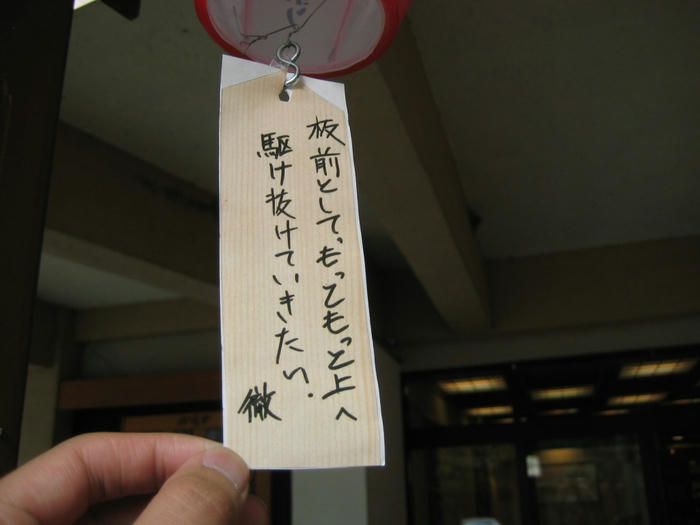 板前として、もってもっと上へ
駆け抜けていきたい.
徹